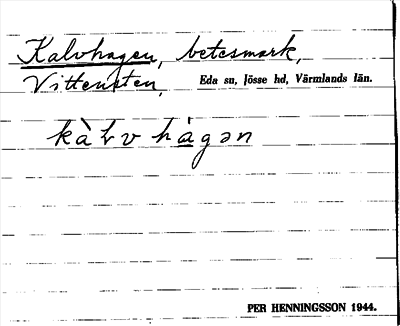 Kalvhagen, betesmark,
Vittensten, Eda sn, Jösse hd, Värmlands län.
kàɫv hàgən
PER HENNINGSSON 1944.